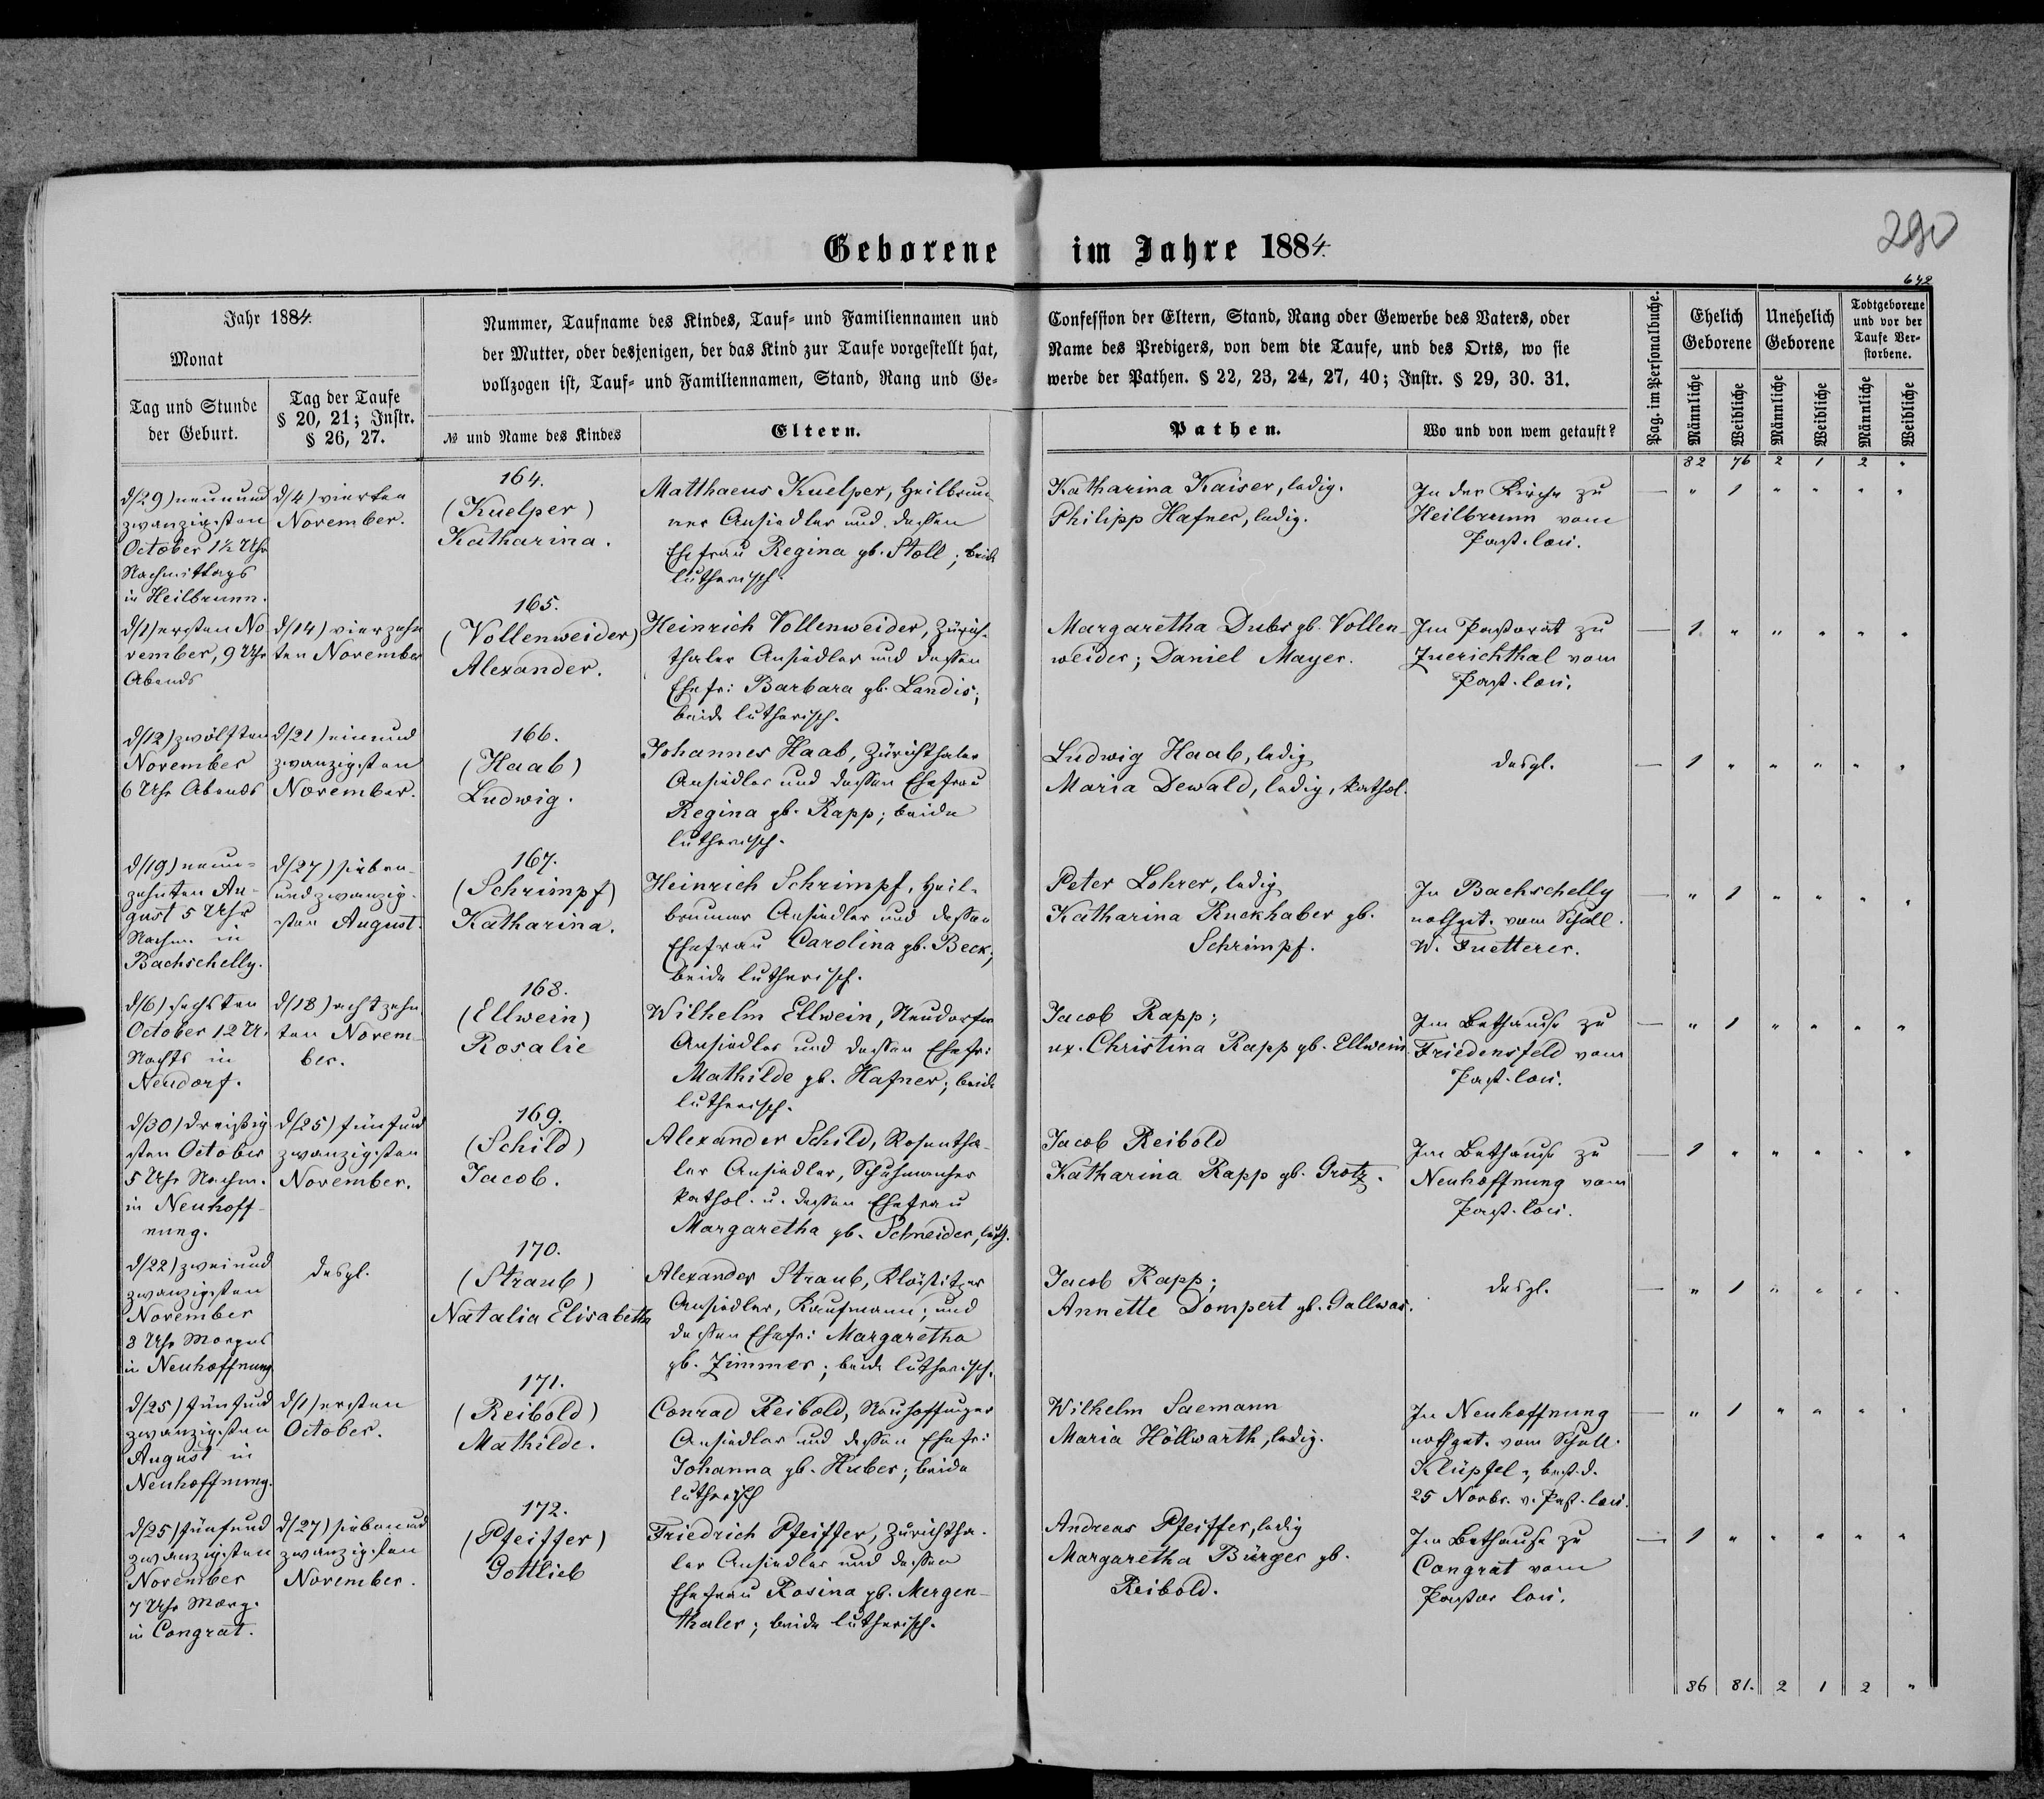 290
Geborene im Jahre 1884.
642
Jahr 1884.
Monat
Tag und Stunde
der Geburt.
Tag der Taufe
§ 20, 21; Instr.
§ 26, 27.
Nummer, Taufname des Kindes, Tauf- und Familiennamen und
der Mutter, oder desjenigen, der das Kind zur Taufe vorgestellt hat,
vollzogen ist, Tauf- und Familiennamen, Stand, Rang und Ge-
№ und Name des Kindes
Eltern.
Confession der Eltern, Stand, Rang oder Gewerbe des Vaters, oder
Name des Predigers, von dem die Taufe, und des Orts, wo sie
werde der Pathen. § 22, 23, 24, 27, 40; Instr. § 29, 30. 31.
Pathen.
Wo und von wem getauft?
Pag. im Personalbuche.
Ehelich
Geborene
Unehelich
Geborene
Todtgeborene
und vor der
Taufe Ver-
storbene.
Männliche
Weibliche
Männliche
Weibliche
Männliche
Weibliche
82 76 2 1 2 "
d/29) neunund
zwanzigsten
October 1½ Uhr
Nachmittags
in Heilbrunn.
d/4) vierten
November.
164.
(Kuelper)
Katharina.
Matthaeus Kuelper, Heilbrun
ner Ansiedler und dessen
Ehefrau Regina gb. Stoll; beide
lutherisch.
Katharina Kaiser, ledig.
Philipp Hafner, ledig.
In der Kirche zu
Heilbrunn vom
Past. loci.
— " 1 " " " "
d/1) ersten No
vember, 9 Uhr
Abends
d/14) vierzehn
ten November
165.
(Vollenweider)
Alexander.
Heinrich Vollenweider, Zürich-
thaler Ansiedler und dessen
Ehefr: Barbara gb. Landis;
beide lutherisch.
Margaretha Dubs gb. Vollen-
weider; Daniel Mayer.
Im Pastorat zu
Zuerichthal vom
Past. loci.
— 1 " " " " "
d/12) zwölften
November
6 Uhr Abends
d/21) einund
zwanzigsten
November.
166.
(Haab)
Ludwig.
Johannes Haab, Zürichthaler
Ansiedler und dessen Ehefrau
Regina gb. Rapp; beide
lutherisch.
Ludwig Haab, ledig
Maria Dewald, ledig, kathol.
desgl.
— 1 " " " " "
d/19) neun-
zehnten Au-
gust 5 Uhr
Nachm. in
Bachschelly.
d/27) sieben-
und zwanzig-
sten August.
167.
(Schrimpf)
Katharina.
Heinrich Schrimpf, Heil-
brunner Ansiedler und dessen
Ehefrau Carolina gb. Beck;
beide lutherisch.
Peter Lohrer, ledig
Katharina Ruckhaber gb.
Schrimpf.
In Bachschelly
nothget. vom Schull.
W. Fuetterer.
— " 1 " " " "
d/6) sechsten
October 12 U.
Nachts in
Neudorf.
d/18) achtzehn
ten Novem-
ber.
168.
(Ellwein)
Rosalie
Wilhelm Ellwein, Neudorfer
Ansiedler und dessen Ehefr:
Mathilde gb. Hafner; beide
lutherisch.
Jacob Rapp;
ux. Christina Rapp gb. Ellwein.
Im Bethause zu
Friedensfeld vom
Past. loci.
— " 1 " " " "
d/30) dreißig
sten October
5 Uhr Nachm.
in Neuhoff-
nung.
d/25) fünfund
zwanzigsten
November.
169.
(Schild)
Jacob.
Alexander Schild, Rosentha-
ler Ansiedler, Schuhmacher
kathol. u. dessen Ehefrau
Margaretha gb. Schneider, luth.
Jacob Reibold
Katharina Rapp gb. Grotz.
Im Bethause zu
Neuhoffnung vom
Past. loci.
— 1 " " " " "
d/22) zweiund
zwanzigsten
November
8 Uhr Morgens
in Neuhoffnung
desgl.
170.
(Straub)
Natalia Elisabetha
Alexander Straub, Klöstitzer
Ansiedler, Kaufmann; und
dessen Ehefr: Margaretha
gb. Zimmer; beide lutherisch.
Jacob Rapp;
Annette Dompert gb. Gallwas.
desgl.
— " 1 " " " "
d/25) fünfund
zwanzigsten
August in
Neuhoffnung.
d/1) ersten
October.
171.
(Reibold)
Mathilde.
Conrad Reibold, Neuhoffnunger
Ansiedler und dessen Ehefr:
Johanna gb. Huber; beide
lutherisch
Wilhelm Saemann
Maria Höllwarth, ledig.
In Neuhoffnung
nothget. vom Schull.
Klüpfel; best. d.
25 Novbr. v. Past. loci.
— " 1 " " " "
d/25) fünfund
zwanzigsten
November
7 Uhr Morg.
in Congrat.
d/27) siebenund
zwanzigsten
November.
172.
(Pfeiffer)
Gottlieb
Friedrich Pfeiffer, Zürichtha-
ler Ansiedler und dessen
Ehefrau Rosina gb. Mergen-
thaler; beide lutherisch.
Andreas Pfeiffer, ledig
Margaretha Bürger gb.
Reibold.
Im Bethause zu
Congrat vom
Pastor loci.
— 1 " " " " "
86 81. 2 1 2 "